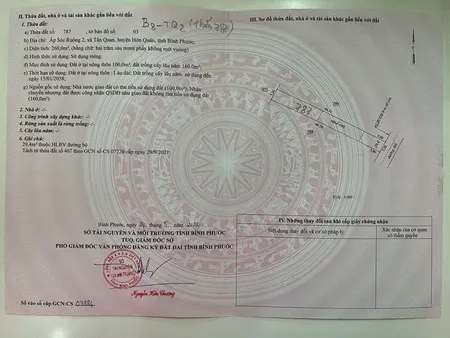 II. Thửa đất, nhà ở và tài sản khác gắn liền với đất
1. Thửa đất:
a) Thửa đất số: 787 , tờ bản đồ số: 03
b) Địa chỉ: Ấp Sóc Ruộng 2, xã Tân Quan, huyện Hớn Quản, tỉnh Bình Phước.
c) Diện tích: 260,0m², (bằng chữ: hai trăm sáu mươi phẩy không mét vuông)
d) Hình thức sử dụng: Sử dụng riêng;
đ) Mục đích sử dụng: Đất ở tại nông thôn 100,0m²; đất trồng cây lâu năm 160,0m².
e) Thời hạn sử dụng: Đất ở tại nông thôn : Lâu dài; Đất trồng cây lâu năm: sử dụng đến
ngày 15/01/2038.
g) Nguồn gốc sử dụng: Nhà nước giao đất có thu tiền sử dụng đất (100,0m²); Nhận
chuyển nhượng đất được công nhận QSDĐ như giao đất không thu tiền sử dụng đất
(160,0m²)
2. Nhà ở: -/-
3. Công trình xây dựng khác: -/-
4. Rừng sản xuất là rừng trồng: -/-
5. Cây lâu năm: -/-
6. Ghi chú:
29,4m² thuộc HLBV đường bộ
Tách từ thửa đất số 467 theo GCN số CS 07720 cấp ngày 29/9/2021
Bình Phước, ngày
SỞ TÀI NGUYÊN VÀ MÔI TRƯỜNG TỈNH BÌNH PHƯỚC
TUQ. GIÁM ĐỐC SỞ
PHÓ GIÁM ĐỐC VĂN PHÒNG ĐĂNG KÝ ĐẤT ĐAI TỈNH BÌNH PHƯỚC
Nguyễn Hữu Phương
Số vào sổ cấp GCN:CS
III. Sơ đồ thửa đất, nhà ở và tài sản khác gắn liền với đất
788
IV. Những thay đổi sau khi cấp giấy chứng nhận
Nội dung thay đổi và cơ sở pháp lý
Xác nhận của cơ quan
có thẩm quyền